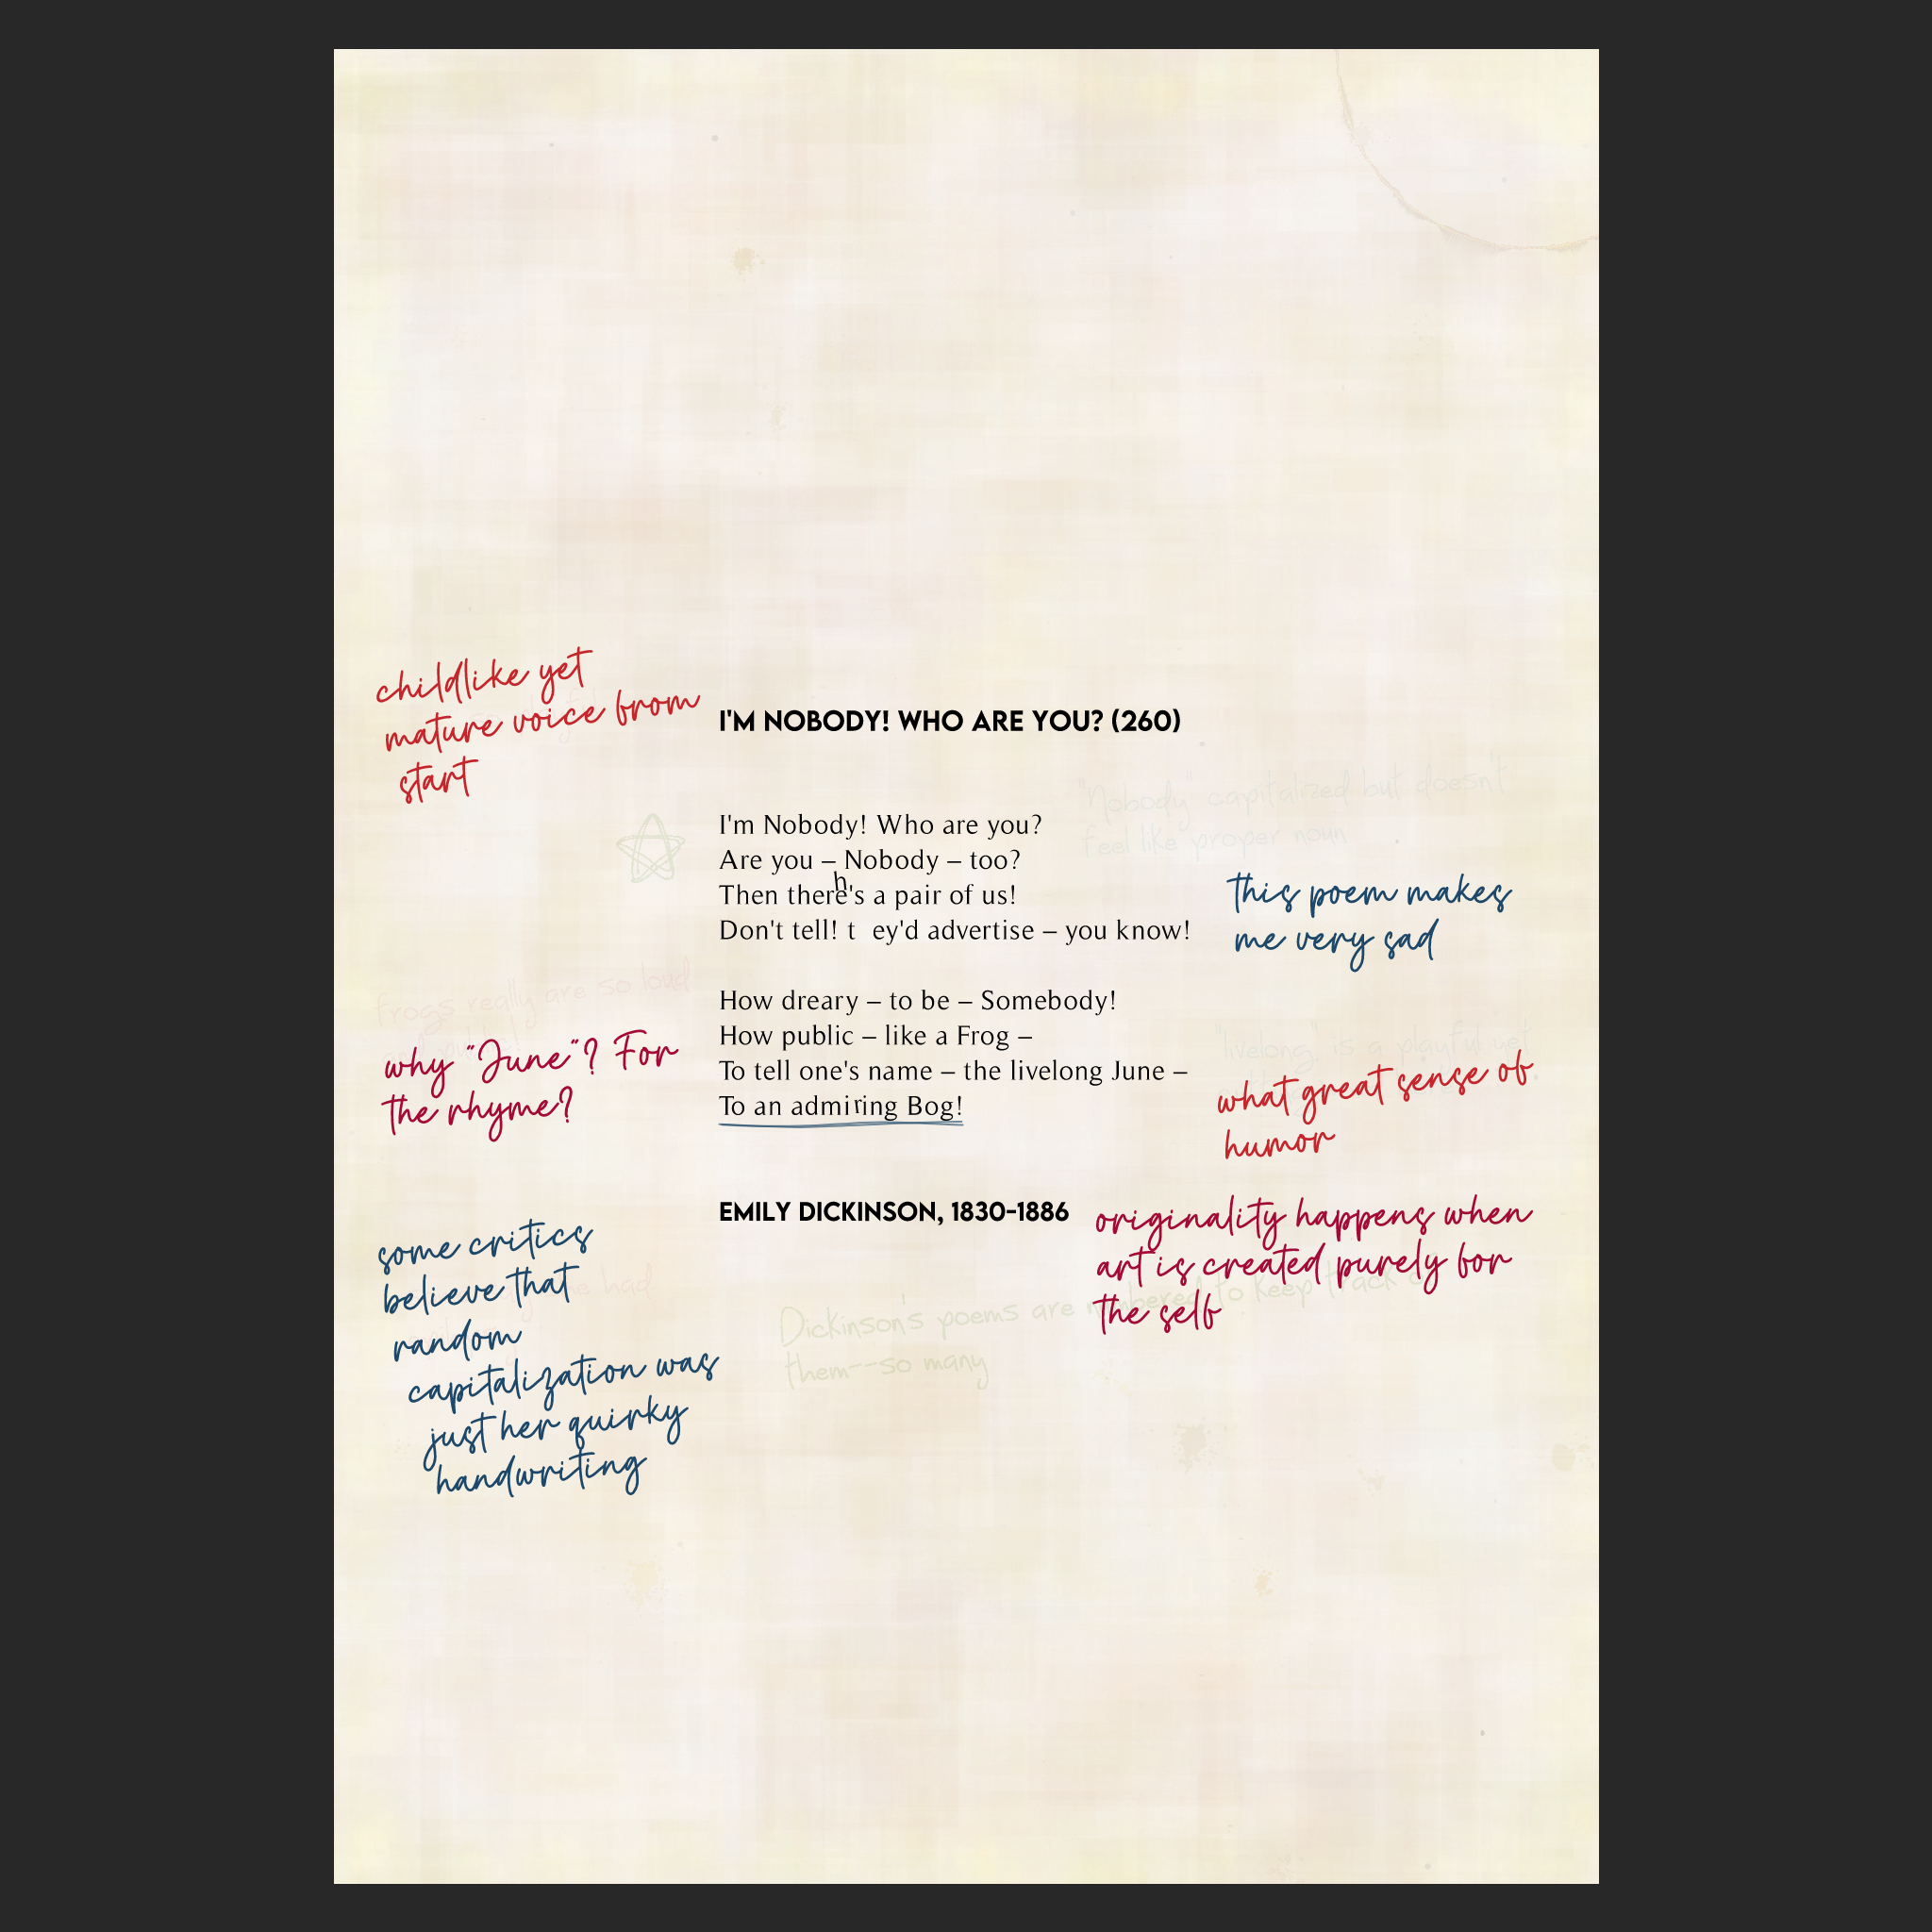 childlike yet
mature voice from
start
I'M NOBODY! WHO ARE YOU? (260)
"Nobody" capitalized but doesn't
feel like proper noun
I'm Nobody! Who are you?
Are you – Nobody – too?
Then there's a pair of us!
Don't tell! they'd advertise – you know!
this poem makes
me very sad
frogs really are so loud
How dreary – to be – Somebody!
How public – like a Frog –
To tell one's name – the livelong June –
To an admiring Bog!
why "June"? For
the rhyme?
"livelong" is a playful yet
what great sense of
humor
EMILY DICKINSON, 1830-1886
originality happens when
art is created purely for
the self
some critics
believe that
random
capitalization was
just her quirky
handwriting
had
Dickinson's poems are numbered to keep track
them--so many